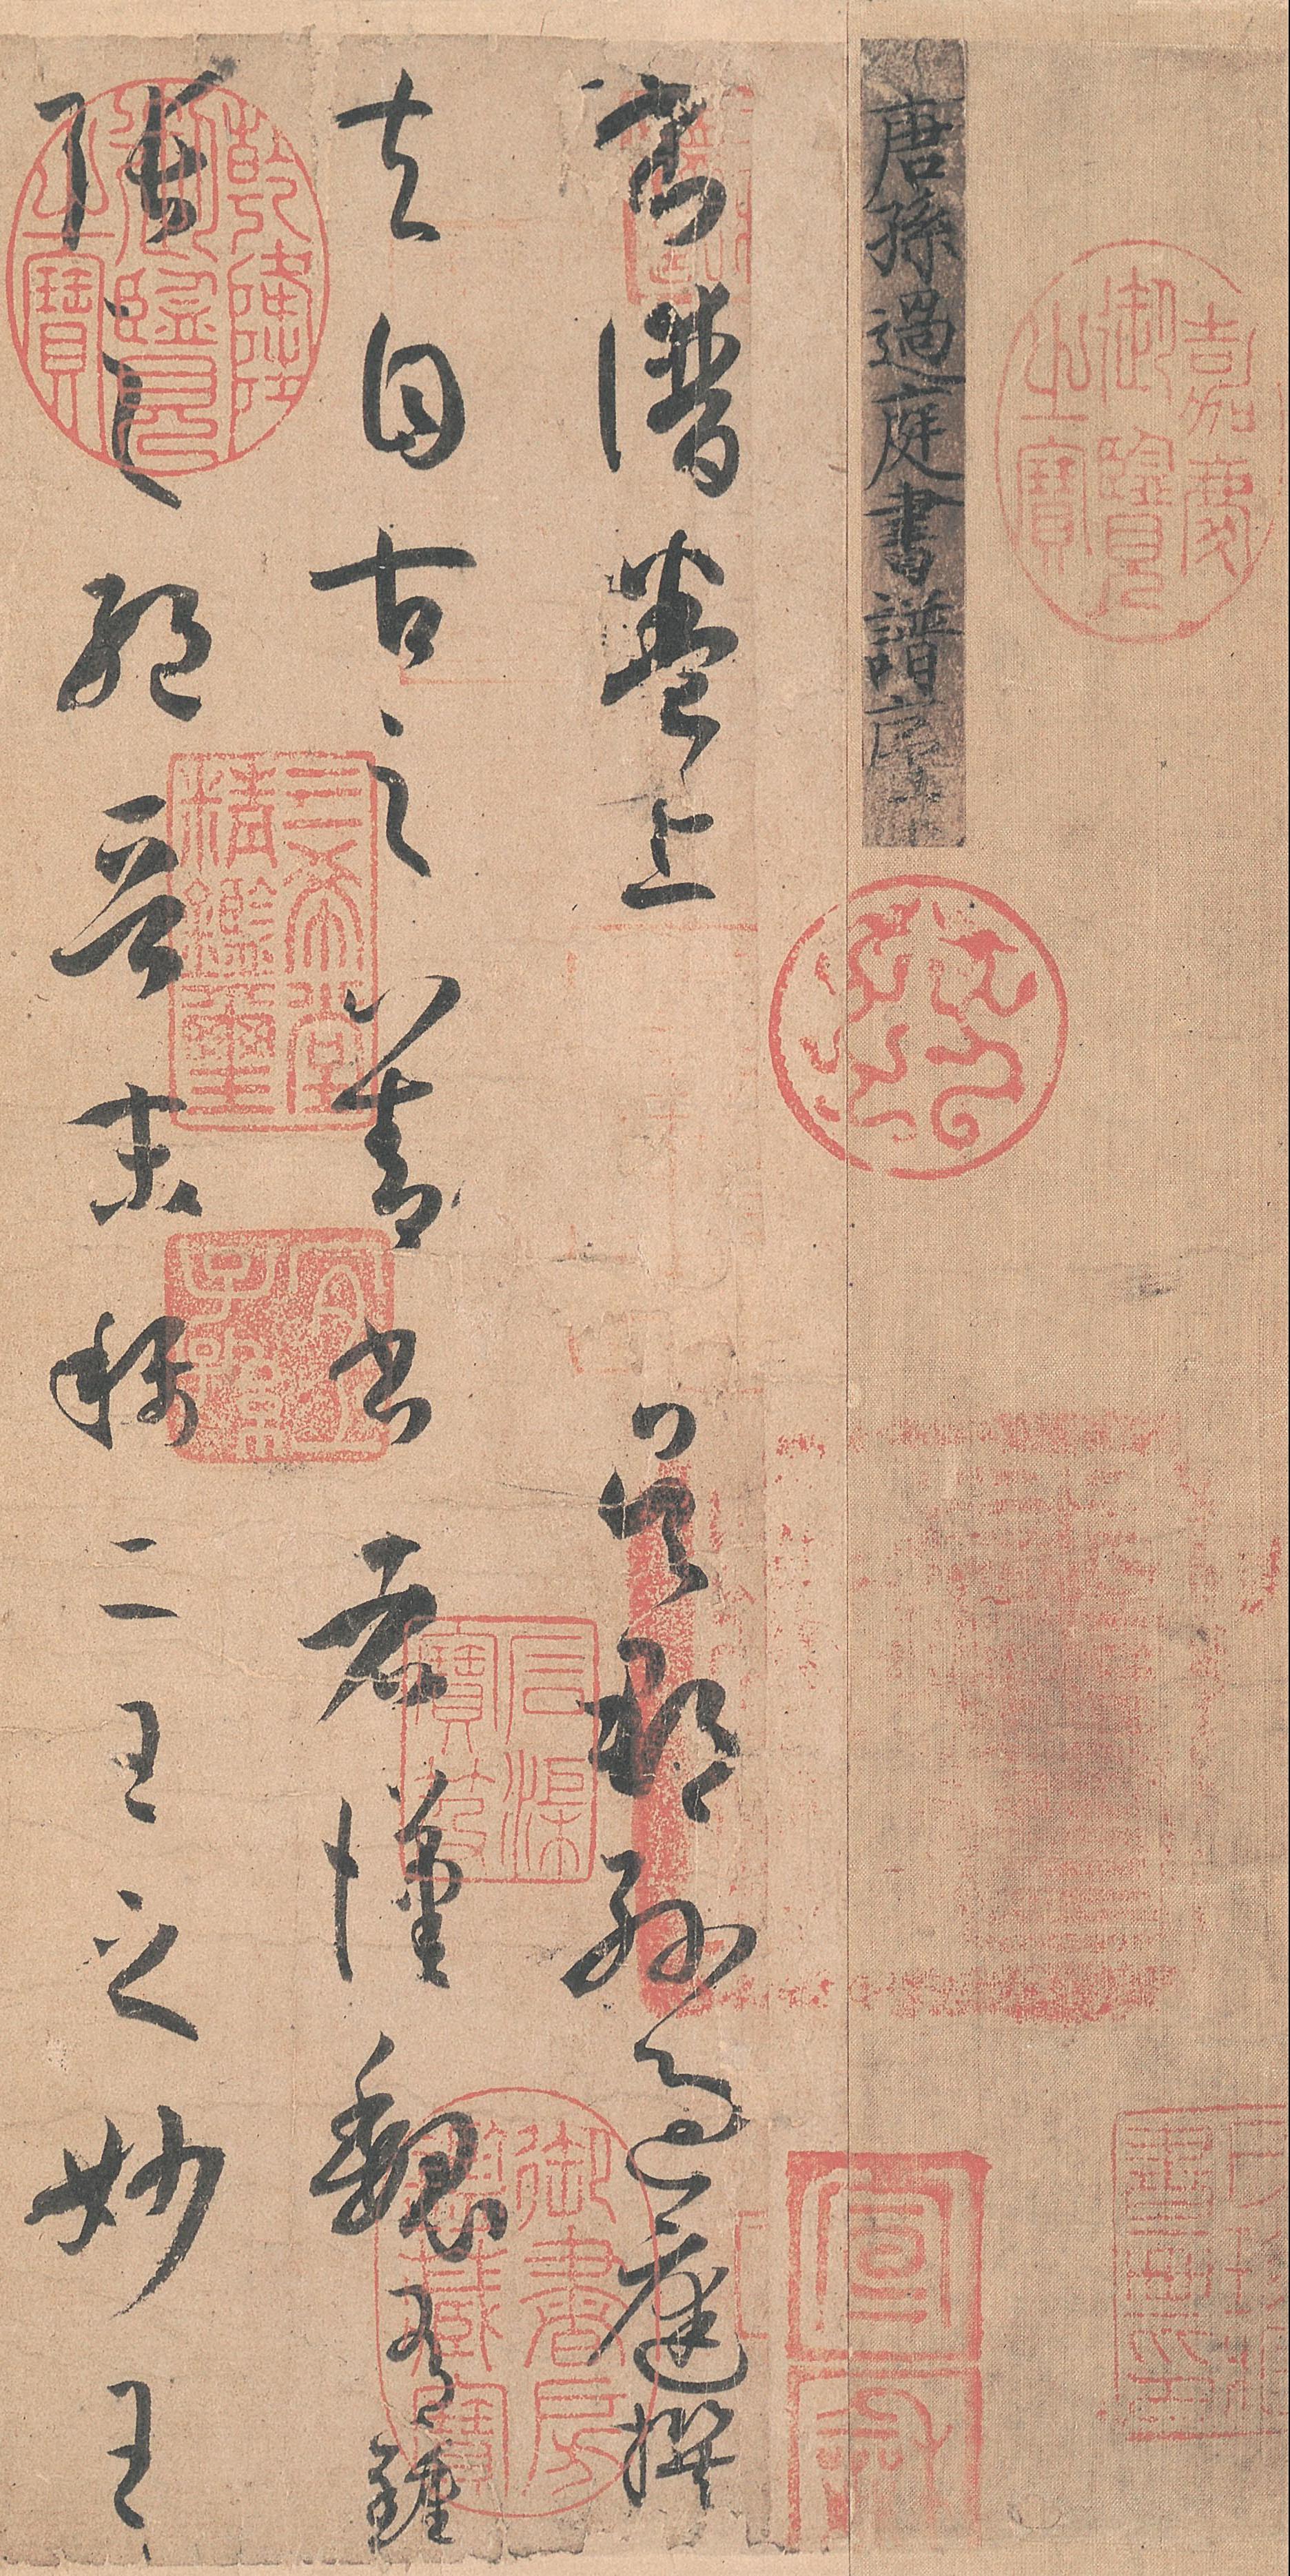 嘉慶御覽之寶
唐孫過庭書譜序
書譜卷上 吳郡孫過庭撰
夫自古之善書者漢魏有鍾
張之絕晉末稱二王之妙王
乾隆御覽之寶
三希堂精鑑璽
宜子孫
石渠寶笈
御書房鑒藏寶
宣和